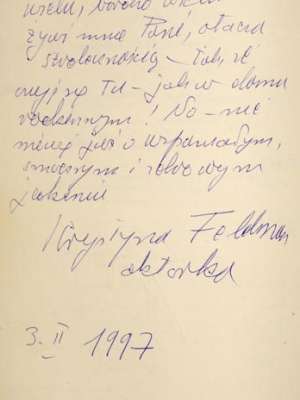 bardzo
Panie, otacza
– tak, że
czuję się tu – jak w domu
rodzinnym! No – nie
mówię już o wspaniałym,
smacznym i zdrowym
jedzeniu
Krystyna Feldman
aktorka
3. II 1997